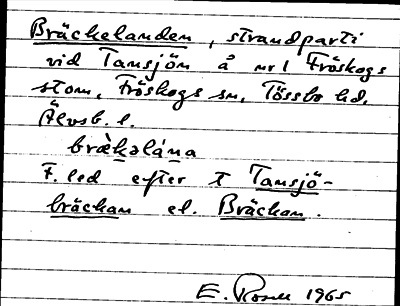 Bräckelanden, strandparti
vid Tansjön å nr 1 Fröskogs
stom, Fröskogs sn, Tössbo hd,
Älvsb. l.
bræ̀kəlána
F. led efter T Tansjö-
bräckan el. Bräckan.
E. Rosell 1965